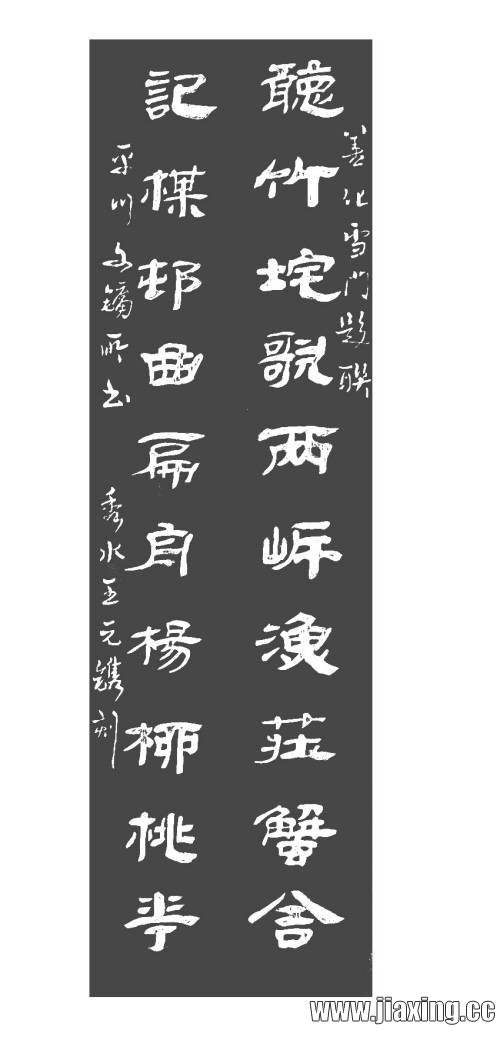 善化雪門題聯
聽竹垞歌兩岸漁莊蟹舍
記楳邨曲扁舟楊柳桃華
平川 鏑所书
秀水王元鐫刻
www.jiaxing.cc